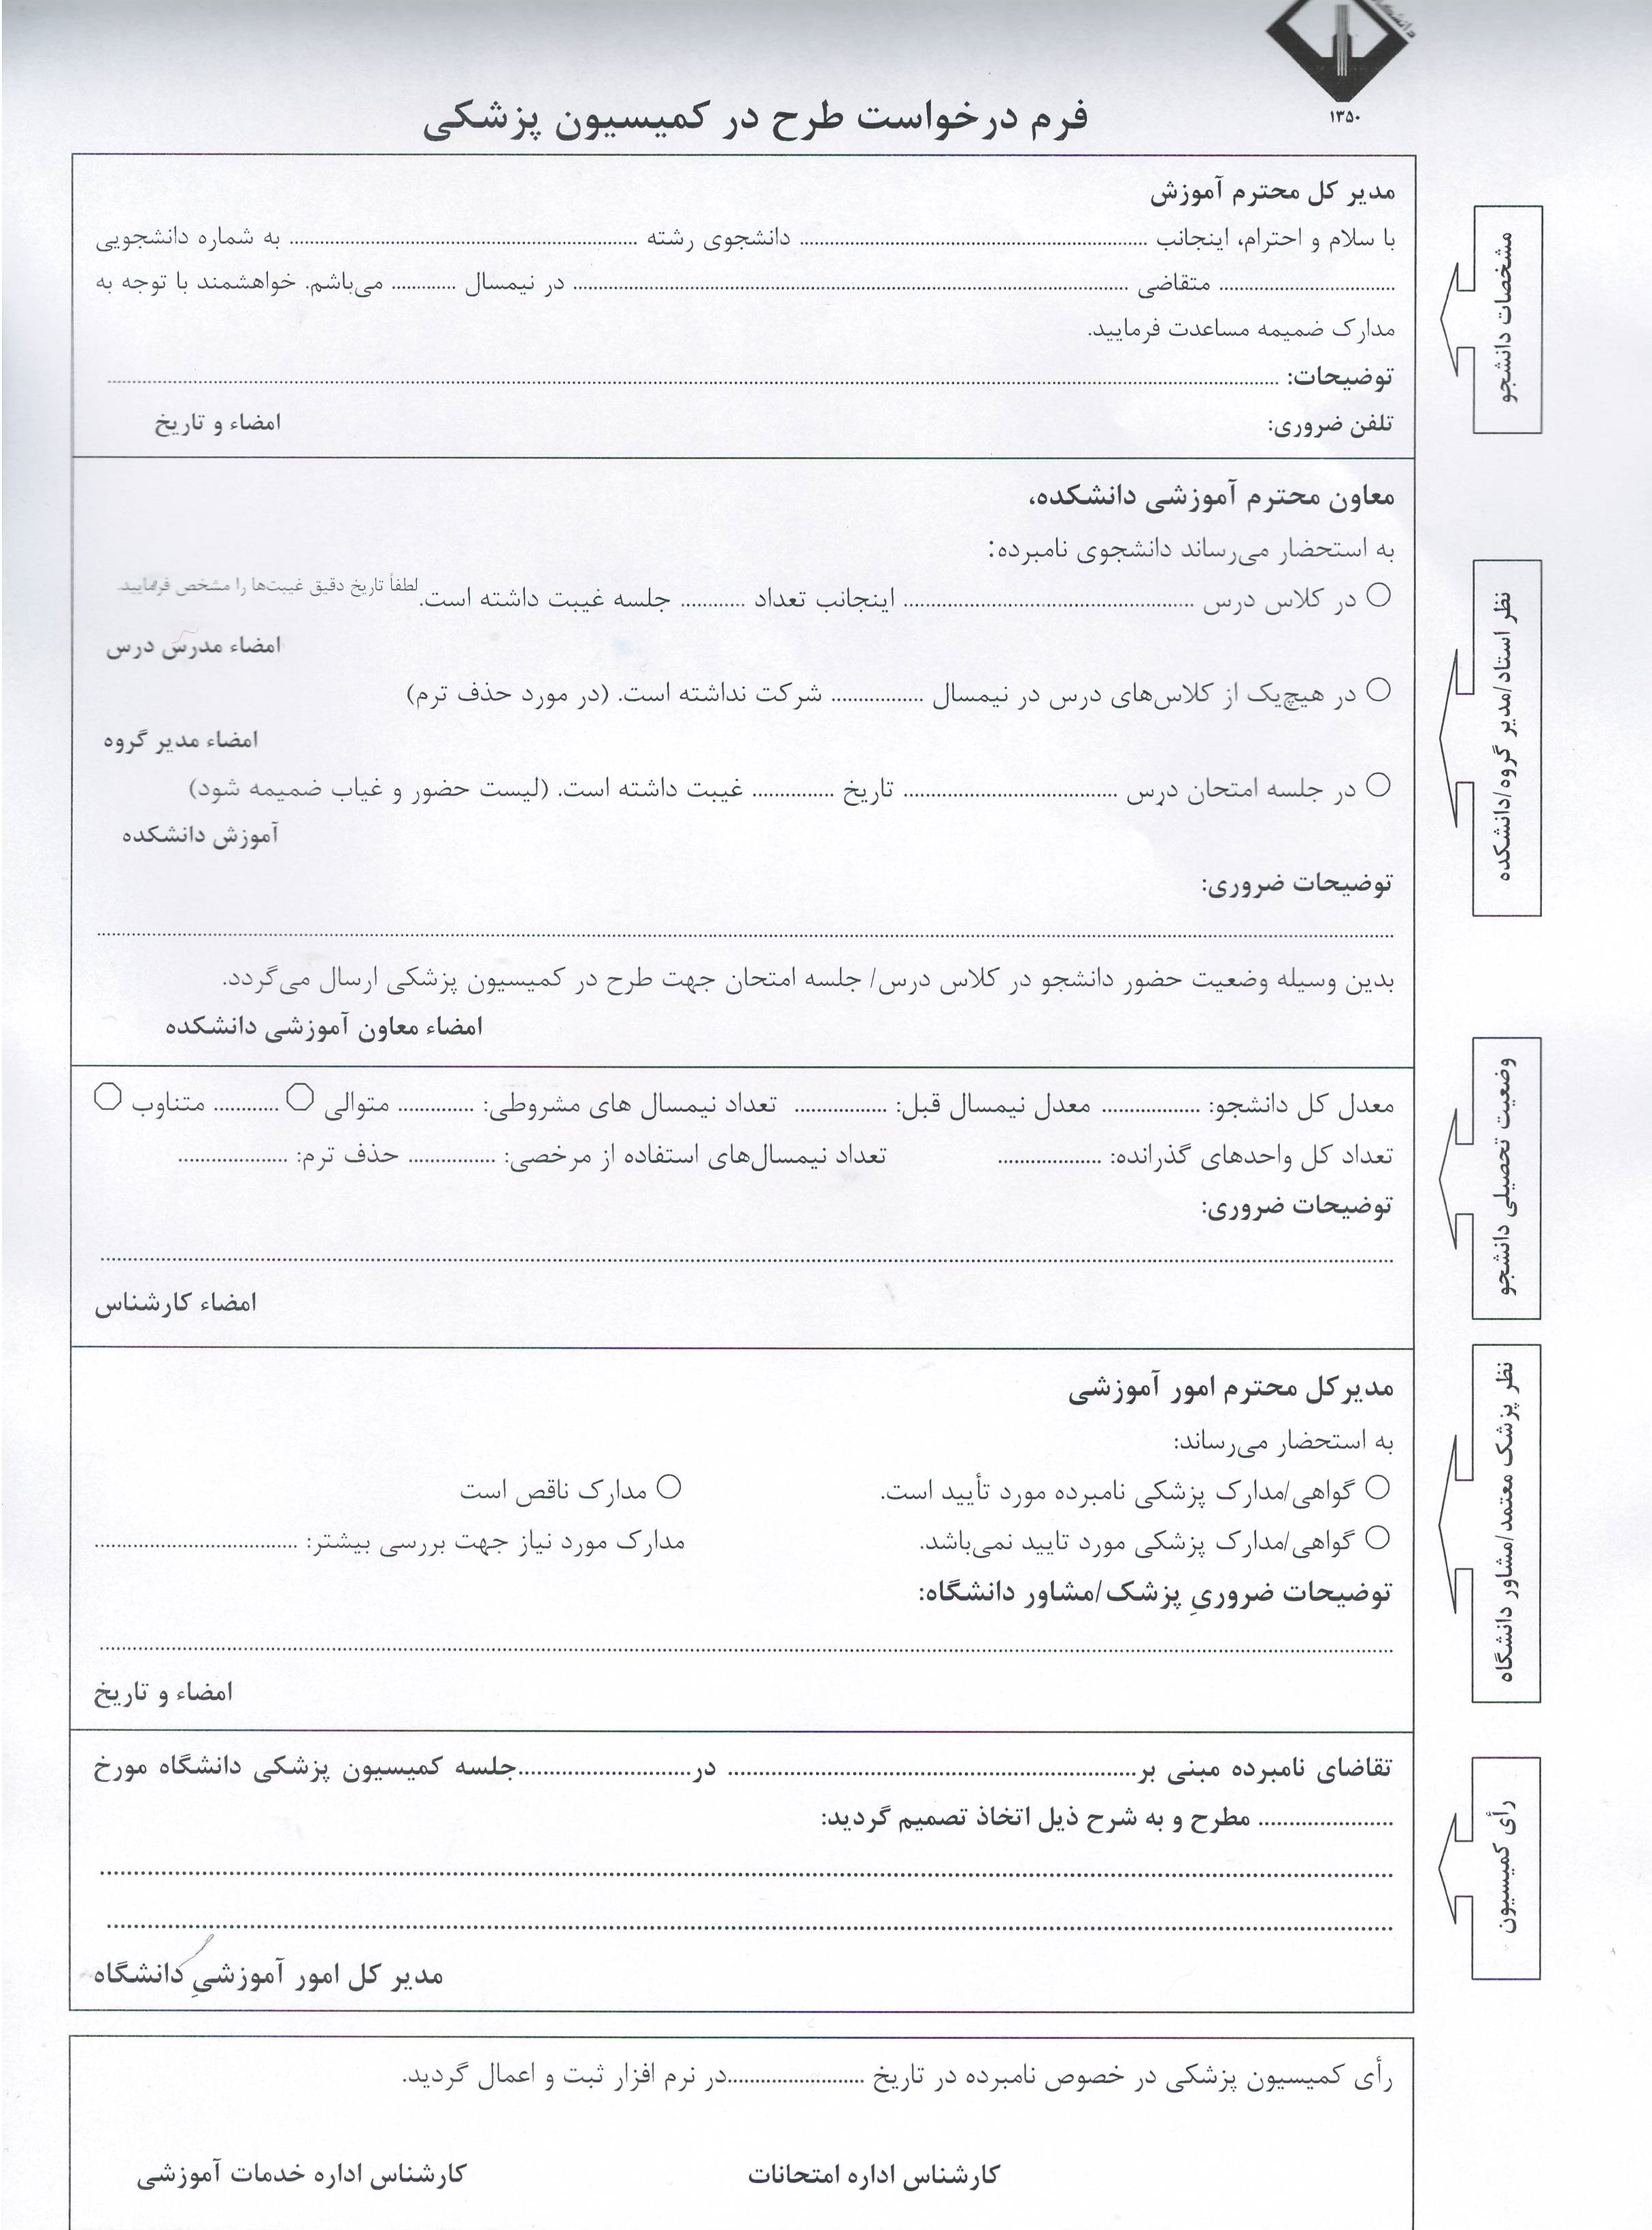 ۱۳۵۰
فرم درخواست طرح در کمیسیون پزشکی
مشخصات دانشجو
مدیر کل محترم آموزش
با سلام و احترام، اینجانب ........................ دانشجوی رشته ........................ به شماره دانشجویی
........................ متقاضی ........................ در نیمسال ............ می‌باشم. خواهشمند با توجه به
مدارک ضمیمه مساعدت فرمایید.
توضیحات: ........................
تلفن ضروری: امضاء و تاریخ
نظر استاد/مدیر گروه/دانشکده
معاون محترم آموزشی دانشکده،
به استحضار می‌رساند دانشجوی نامبرده:
○ در کلاس درس ........................ اینجانب تعداد ............ جلسه غیبت داشته است. لطفاً تاریخ دقیق غیبت‌ها را مشخص فرمایید.
امضاء مدرس درس
○ در هیچ‌یک از کلاس‌های درس در نیمسال ................ شرکت نداشته است. (در مورد حذف ترم)
امضاء مدیر گروه
○ در جلسه امتحان درس ........................ تاریخ .............. غیبت داشته است. (لیست حضور و غیاب ضمیمه شود)
آموزش دانشکده
توضیحات ضروری:
........................
بدین وسیله وضعیت حضور دانشجو در کلاس درس/ جلسه امتحان جهت طرح در کمیسیون پزشکی ارسال می‌گردد.
امضاء معاون آموزشی دانشکده
وضعیت تحصیلی دانشجو
معدل کل دانشجو: .................. معدل نیمسال قبل: ................. تعداد نیمسال های مشروطی: .............. متوالی ○ ............ متناوب ○
تعداد کل واحدهای گذرانده: ................... تعداد نیمسال‌های استفاده از مرخصی: ................ حذف ترم: ....................
توضیحات ضروری:
........................
امضاء کارشناس
نظر پزشک معتمد/مشاور دانشگاه
مدیرکل محترم امور آموزشی
به استحضار می‌رساند:
○ گواهی/مدارک پزشکی نامبرده مورد تأیید است. ○ مدارک ناقص است
○ گواهی/مدارک پزشکی مورد تایید نمی‌باشد. مدارک مورد نیاز جهت بررسی بیشتر: ........................
توضیحات ضروریِ پزشک/مشاور دانشگاه:
........................
امضاء و تاریخ
رأی کمیسیون
تقاضای نامبرده مبنی بر........................ در........................جلسه کمیسیون پزشکی دانشگاه مورخ
...................... مطرح و به شرح ذیل اتخاذ تصمیم گردید:
........................
........................
مدیر کل امور آموزشیِ دانشگاه
رأی کمیسیون پزشکی در خصوص نامبرده در تاریخ ........................در نرم افزار ثبت و اعمال گردید.
کارشناس اداره امتحانات کارشناس اداره خدمات آموزشی